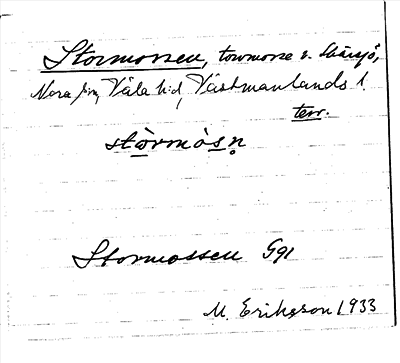 Stormossen, torvmosse v. Skärsjö,
Nora sn, Våla h:d, Västmanlands l.
terr.
stòrmòsn̥
Stormossen Ggl
M. Eriksson 1933